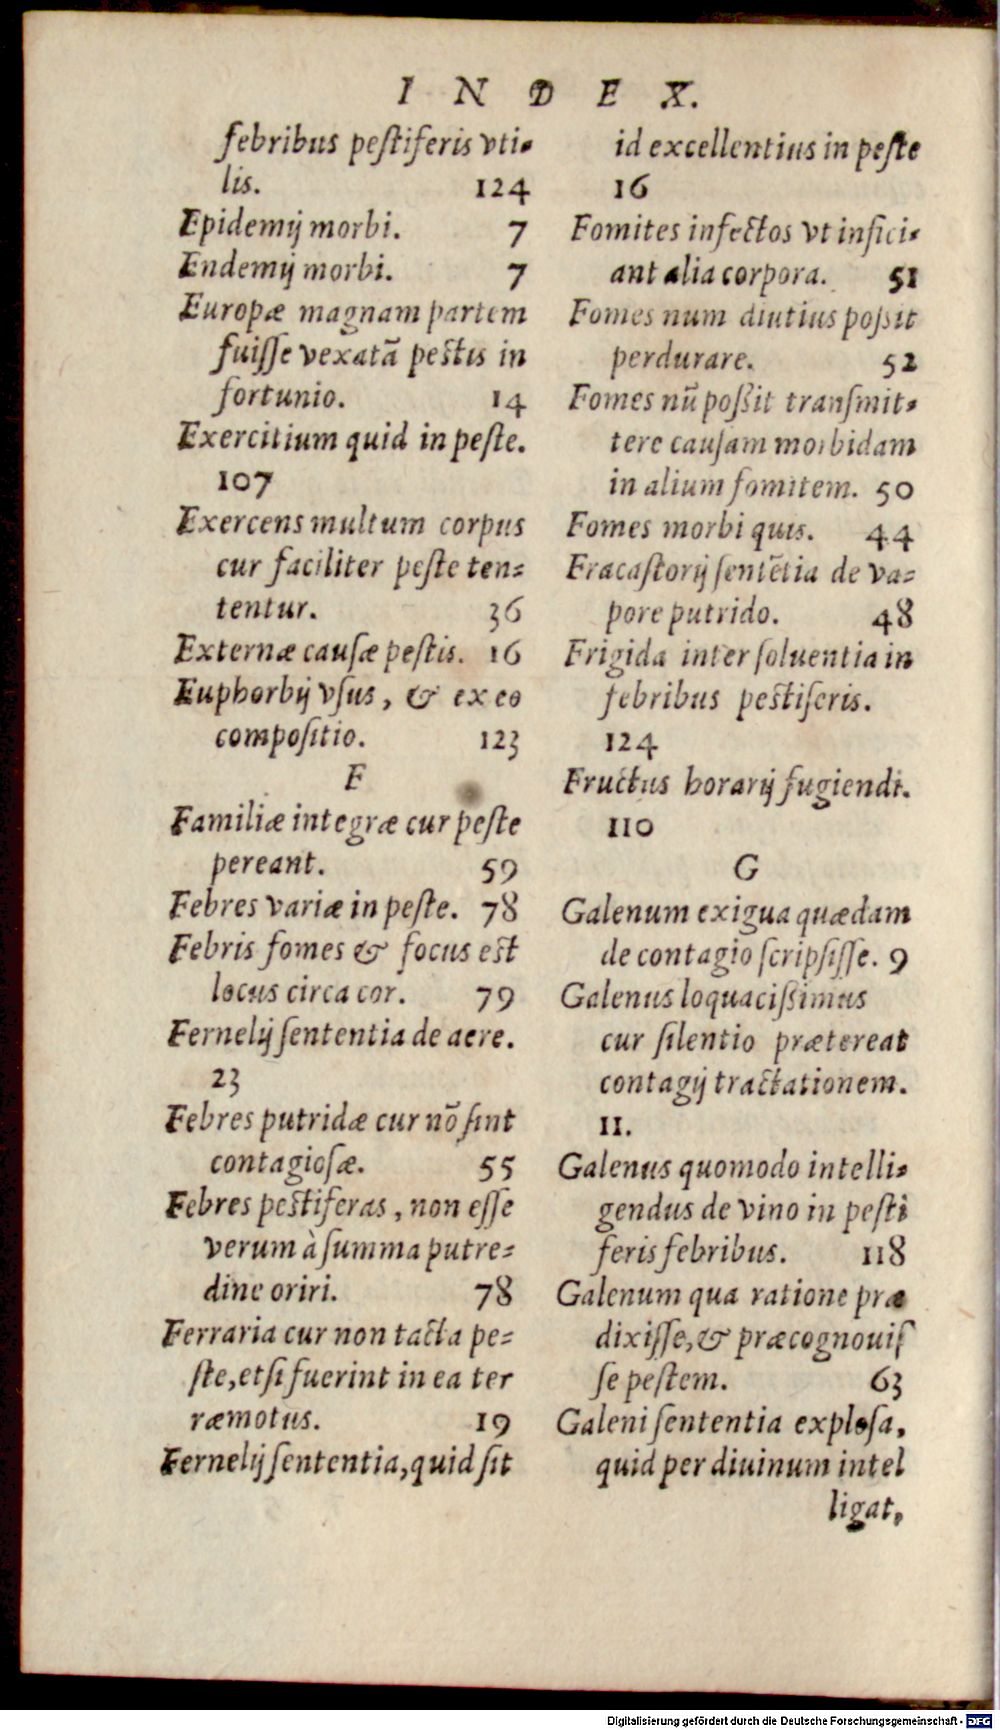 INDEX.
febribus pestiferis vti-
lis. 124
Epidemij morbi. 7
Endemij morbi. 7
Europæ magnam partem
fuisse vexatā pestis in
fortunio. 14
Exercitium quid in peste.
107
Exercens multum corpus
cur faciliter peste ten-
tentur. 36
Externæ causæ pestis. 16
Euphorbij vsus, & ex eo
compositio. 123
F
Familiæ integræ cur peste
pereant. 59
Febres variæ in peste. 78
Febris fomes & focus est
locus circa cor. 79
Fernelij sententia de aere.
23
Febres putridæ cur nō sint
contagiosæ. 55
Febres pestiferas, non esse
verum à summa putre-
dine oriri. 78
Ferraria cur non tacta pe-
ste, etsi fuerint in ea ter
ræmotus. 19
Fernelij sententia, quid sit
id excellentius in peste
16
Fomites infectos vt infici-
ant alia corpora. 51
Fomes num diutius possit
perdurare. 52
Fomes nū possit transmit-
tere causam morbidam
in alium fomitem. 50
Fomes morbi quis. 44
Fracastorij sentētia de va-
pore putrido. 48
Frigida inter soluentia in
febribus pestiferis.
124
Fructus horarij fugiendi.
110
G
Galenum exigua quædam
de contagio scripsisse. 9
Galenus loquacissimus
cur silentio prætereat
contagij tractationem.
11.
Galenus quomodo intelli-
gendus de vino in pesti
feris febribus. 118
Galenum qua ratione præ
dixisse, & præcognouis
se pestem. 63
Galeni sententia explosa,
quid per diuinum intel
ligat,
Digitalisierung gefördert durch die Deutsche Forschungsgemeinschaft - DFG